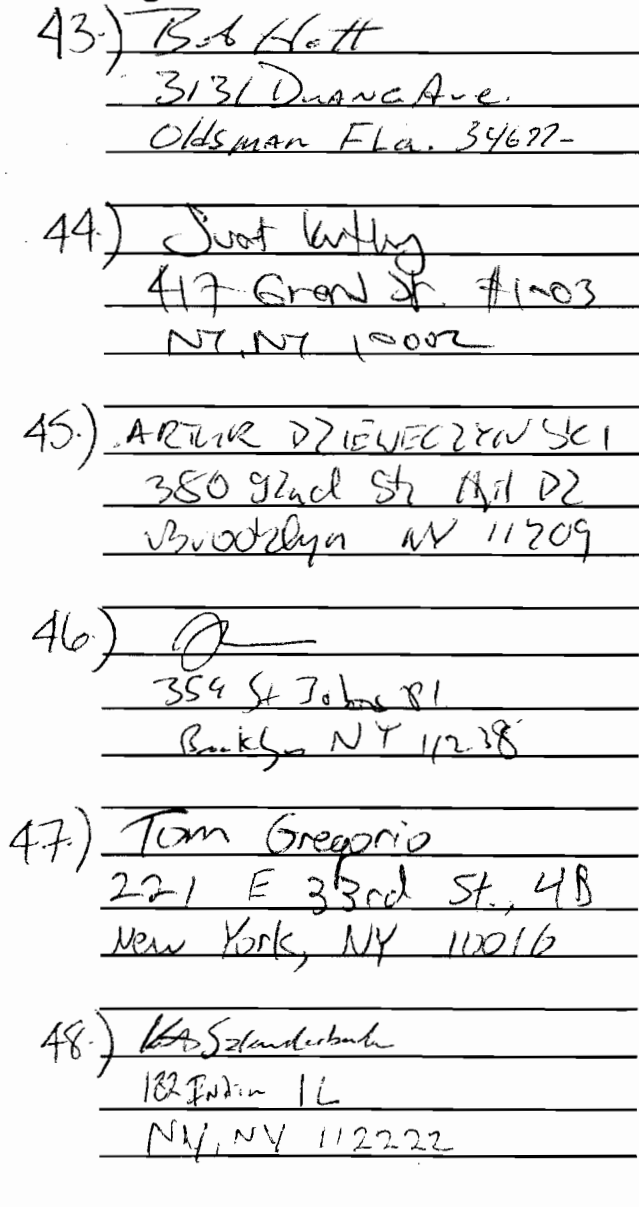 43.) Bob Hott
3131 Duane Ave.
Oldsman Fla. 34677-
44.)
417 Grand St. #1003
NY, NY 10002
45.) ARTUR DZIEWECZYNSKI
350 92nd St D2
Brooklyn NY 11209
46.)
354 St Johns Pl
Brooklyn NY 11238
47.) Tom Gregorio
221 E 33rd St., 4B
New York, NY 10016
48.)
182 1L
NY, NY 112222